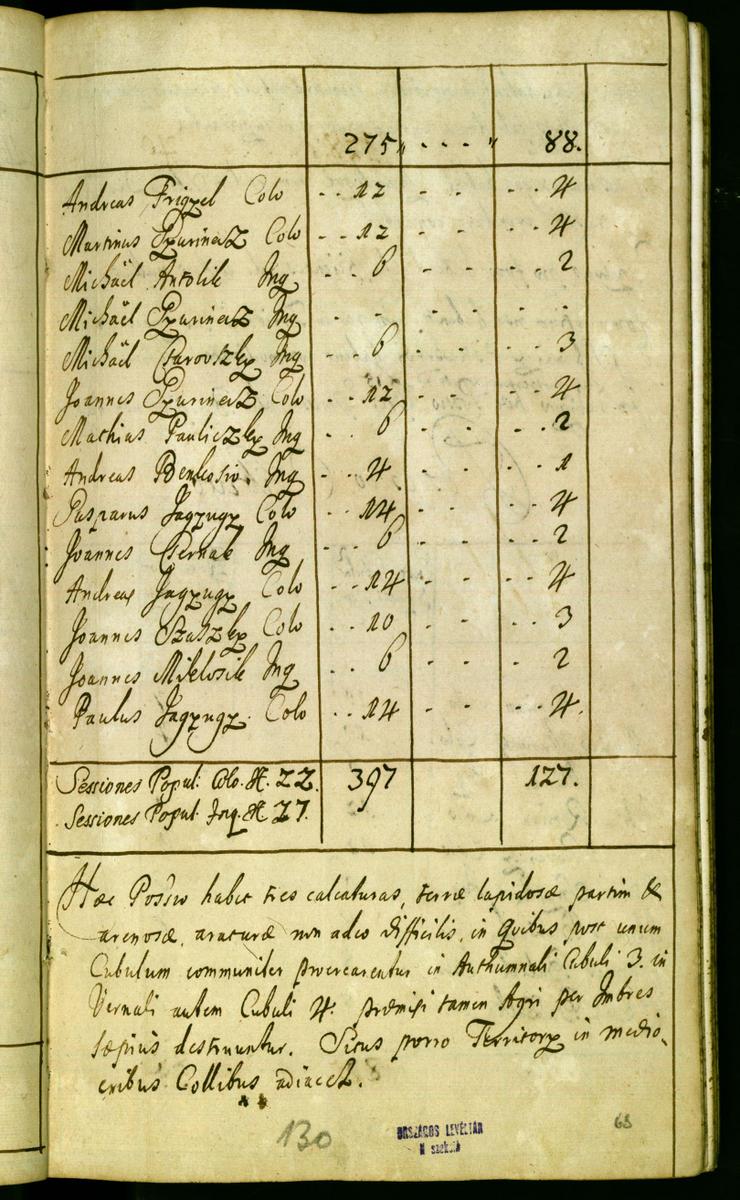 275 „ - - - „ 88.
Andreas Frigyel Colo - - 12 - - - - 4
Martinus Gyurinesz Colo - - 12 - - - - 4
Michaël Antolik Inq - - 6 - - - - 2
Michaël Gyurinesz Inq - - - - - -
Michaël Inq - - 6 - - - - 3
Joannes Gyurinesz Colo - - 12 - - - - 4
Mathias Pauliczky Inq - - 6 - - - - 2
Andreas Inq - - 4 - - - - 1
Gasparus Jagyugy Colo - - 14 - - - - 4
Joannes Csernak Inq - - 6 - - - - 2
Andreas Jagyugy Colo - - 14 - - - - 4
Joannes Szaszky Colo - - 10 - - - - 3
Joannes Miklosik Inq - - 6 - - - - 2
Paulus Jagyugy Colo - - 14 - - - - 4.
Sessiones Popul: Colo. H. 22. 397 127.
Sessiones Popul. Inq. H. 27.
Hæc Possio habet tres calcaturas, terræ lapidosæ partim &
arenosæ, araturæ non adeo difficilis, in quibus post unum
Cubulum communiter procrearentur in Authumnali Cubuli 3. in
Vernali autem Cubuli 4. præmissi tamen Agri per Imbres
sæpius destruuntur. Situs porro Territory in medio-
cribus Collibus adiacet.
130
ORSZÁGOS LEVÉLTÁR
N szekció
68